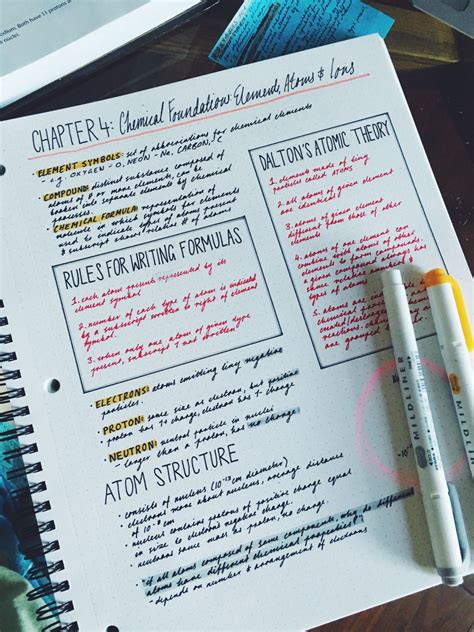 odium. Both have 11 protons a
nuclei.
CHAPTER 4: Chemical Foundation: Elements, Atoms & Ions
• ELEMENT SYMBOLS: set of abbreviations for chemical elements
- e.g. OXYGEN - O, NEON - Ne, CARBON, C
• COMPOUND: distinct substance composed of
atoms of 2 or more elements, can be
broken into separate elements by chemical
processes.
• CHEMICAL FORMULA: representation of
molecule in which symbols for elements
used to indicate types of atoms present
& subscript shows relative # of atoms
RULES FOR WRITING FORMULAS
1. each atom present represented by its
element symbol
2. number of each type of atom is indicated
by a subscript written to right of element
symbol.
3. when only one atom of given type
present, subscript 1 not written!
DALTON'S ATOMIC THEORY
1. elements made of tiny
particles called ATOMS
2. all atoms of given element
are identical!
3. atoms of given element
different from those of other
elements
4. atoms of one element can
combine with atoms of other
elements to form compounds.
a given compound always has
same relative numbers &
types of atoms
5. atoms are indivisible in
chemical processes
created/destroyed
reactions.
are grouped
• ELECTRONS: atoms emitting tiny negative
particles.
• PROTON: same size as electron, but positive
- proton has 1+ change, electron has 1- change
• NEUTRON: neutral particle in nuclei
- larger than a proton, has no change
ATOM STRUCTURE
• consists of nucleus (10⁻¹³ cm diameter)
• electrons move about nucleus, average distance
of 10⁻⁸ cm
• nucleus contains protons of positive change equal
in size to electrons negative change.
• neutrons same mass as proton, no change.
• "if all atoms composed of same components, why do different
atoms have different chemical properties?"
- depends on number & arrangement of electrons
MILDLINER
MILDLINER
ZEBRA